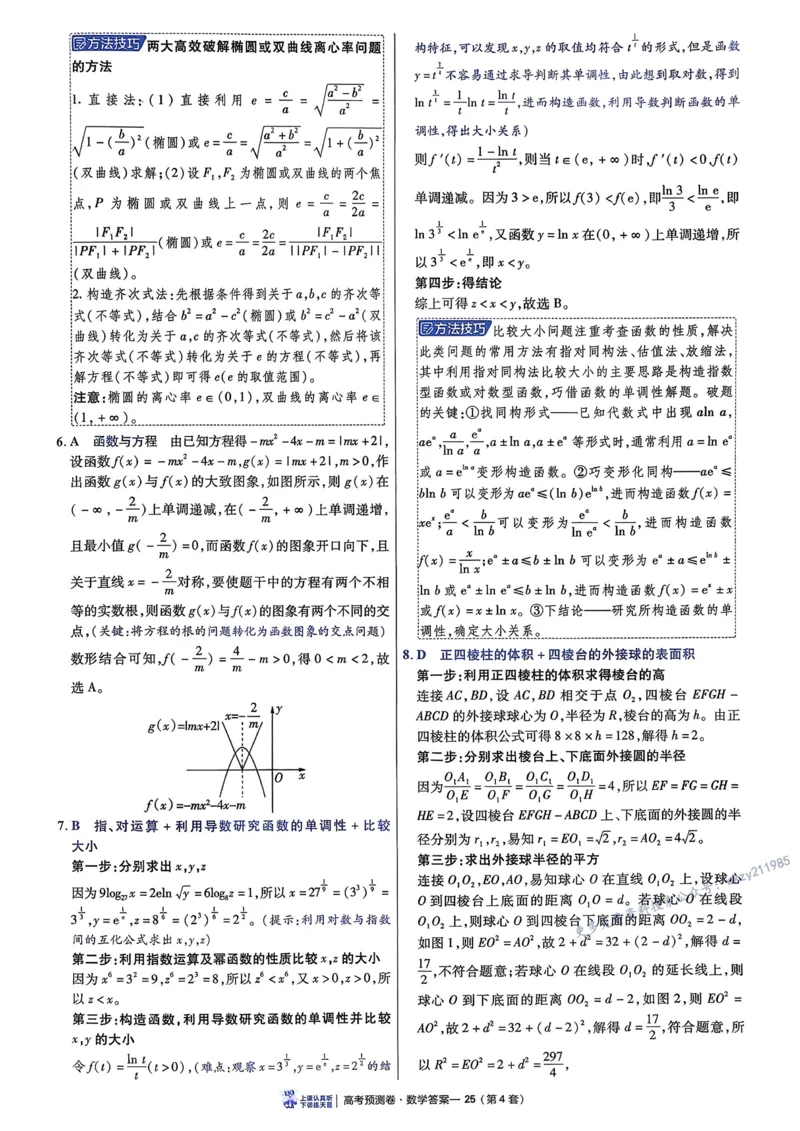 方法技巧 两大高效破解椭圆或双曲线离心率问题
的方法
1. 直接法：(1) 直接利用 e = c/a = √((a²−b²)/a²) =
√(1−(b/a)²)(椭圆)或 e = c/a = √((a²+b²)/a²) = √(1+(b/a)²)
(双曲线)求解；(2)设 F₁,F₂ 为椭圆或双曲线的两个焦
点，P 为椭圆或双曲线上一点，则 e = c/a = 2c/2a =
|F₁F₂|/(|PF₁|+|PF₂|)(椭圆)或 e = c/a = 2c/2a = |F₁F₂|/||PF₁|−|PF₂||
(双曲线)。
2. 构造齐次式法：先根据条件得到关于 a,b,c 的齐次等
式(不等式)，结合 b²=a²−c²(椭圆)或 b²=c²−a²(双
曲线)转化为关于 a,c 的齐次等式(不等式)，然后将该
齐次等式(不等式)转化为关于 e 的方程(不等式)，再
解方程(不等式)即可得 e(e 的取值范围)。
注意：椭圆的离心率 e∈(0,1)，双曲线的离心率 e∈
(1,+∞)。
6. A 函数与方程 由已知方程得 −mx²−4x−m=|mx+2|，
设函数 f(x) = −mx²−4x−m,g(x) = |mx+2|,m>0,作
出函数 g(x)与 f(x)的大致图象，如图所示，则 g(x)在
(−∞,−2/m)上单调递减，在(−2/m,+∞)上单调递增，
且最小值 g(−2/m)=0,而函数 f(x)的图象开口向下，且
关于直线 x=−2/m对称，要使题干中的方程有两个不相
等的实数根，则函数 g(x)与 f(x)的图象有两个不同的交
点，(关键：将方程的根的问题转化为函数图象的交点问题)
数形结合可知，f(−2/m) = 4/m − m>0,得 0<m<2,故
选 A。
g(x)=|mx+2|
x=−2/m
y
O
x
f(x)=−mx²−4x−m
7. B 指、对运算＋利用导数研究函数的单调性＋比较
大小
第一步：分别求出 x,y,z
因为 9log₂₇x = 2eln √y = 6log₈z = 1,所以 x = 27^(1/9) = (3³)^(1/9) =
3^(1/3),y = e^(1/e),z = 8^(1/6) = (2³)^(1/6) = 2^(1/2)。(提示：利用对数与指数
间的互化公式求出 x,y,z)
第二步：利用指数运算及幂函数的性质比较 x,z 的大小
因为 x⁶=3²=9,z⁶=2³=8,所以 z⁶<x⁶,又 x>0,z>0,所
以 z<x。
第三步：构造函数，利用导数研究函数的单调性并比较
x,y 的大小
令 f(t) = ln t/t(t>0),(难点：观察 x=3^(1/3),y=e^(1/e),z=2^(1/2)的结
构特征，可以发现 x,y,z 的取值均符合 t^(1/t) 的形式，但是函数
y=t^(1/t)不容易通过求导判断其单调性，由此想到取对数，得到
ln t^(1/t) = 1/t ln t = ln t/t,进而构造函数，利用导数判断函数的单
调性，得出大小关系)
则 f′(t) = (1−ln t)/t²,则当 t∈(e,+∞)时，f′(t)<0,f(t)
单调递减。因为 3>e,所以 f(3)<f(e),即 ln 3/3 < ln e/e,即
ln 3^(1/3) < ln e^(1/e),又函数 y=ln x 在(0,+∞)上单调递增，所
以 3^(1/3) < e^(1/e),即 x<y。
第四步：得结论
综上可得 z<x<y,故选 B。
方法技巧 比较大小问题注重考查函数的性质，解决
此类问题的常用方法有指对同构法、估值法、放缩法，
其中利用指对同构法比较大小的主要思路是构造指数
型函数或对数型函数，巧借函数的单调性解题。破题
的关键：①找同构形式——已知代数式中出现 aln a,
aeᵃ, a/ln a, eᵃ/a, a±ln a,a±eᵃ 等形式时，通常利用 a=ln eᵃ
或 a=e^(ln a)变形构造函数。②巧变形化同构——aeᵃ≤
bln b 可以变形为 aeᵃ≤(ln b)e^(ln b),进而构造函数 f(x)=
xeˣ; eᵃ/a < b/ln b 可以变形为 eᵃ/ln eᵃ < b/ln b,进而构造函数
f(x) = x/ln x; eᵃ±a≤b±ln b 可以变形为 eᵃ±a≤e^(ln b)±
ln b 或 eᵃ±ln eᵃ≤b±ln b,进而构造函数 f(x)=eˣ±x
或 f(x)=x±ln x。③下结论——研究所构造函数的单
调性，确定大小关系。
8. D 正四棱柱的体积＋四棱台的外接球的表面积
第一步：利用正四棱柱的体积求得棱台的高
连接 AC,BD,设 AC,BD 相交于点 O₂,四棱台 EFGH−
ABCD 的外接球球心为 O,半径为 R,棱台的高为 h。由正
四棱柱的体积公式可得 8×8×h=128,解得 h=2。
第二步：分别求出棱台上、下底面外接圆的半径
因为 O₁A₁/O₁E = O₁B₁/O₁F = O₁C₁/O₁G = O₁D₁/O₁H = 4,所以 EF=FG=GH=
HE=2,设四棱台 EFGH−ABCD 上、下底面的外接圆的半
径分别为 r₁,r₂,易知 r₁=EO₁=√2,r₂=AO₂=4√2。
第三步：求出外接球半径的平方
连接 O₁O₂,EO,AO,易知球心 O 在直线 O₁O₂ 上，设球心
O 到四棱台上底面的距离 O₁O=d。若球心 O 在线段
O₁O₂ 上，则球心 O 到四棱台下底面的距离 OO₂=2−d,
如图 1,则 EO²=AO²,故 2+d²=32+(2−d)²,解得 d=
17/2,不符合题意；若球心 O 在线段 O₁O₂ 的延长线上，则
球心 O 到下底面的距离 OO₂=d−2,如图 2,则 EO²=
AO²,故 2+d²=32+(d−2)²,解得 d=17/2,符合题意，所
以 R²=EO²=2+d²=297/4,
上课认真听
下课练天星
高考预测卷·数学答案—25(第4套)